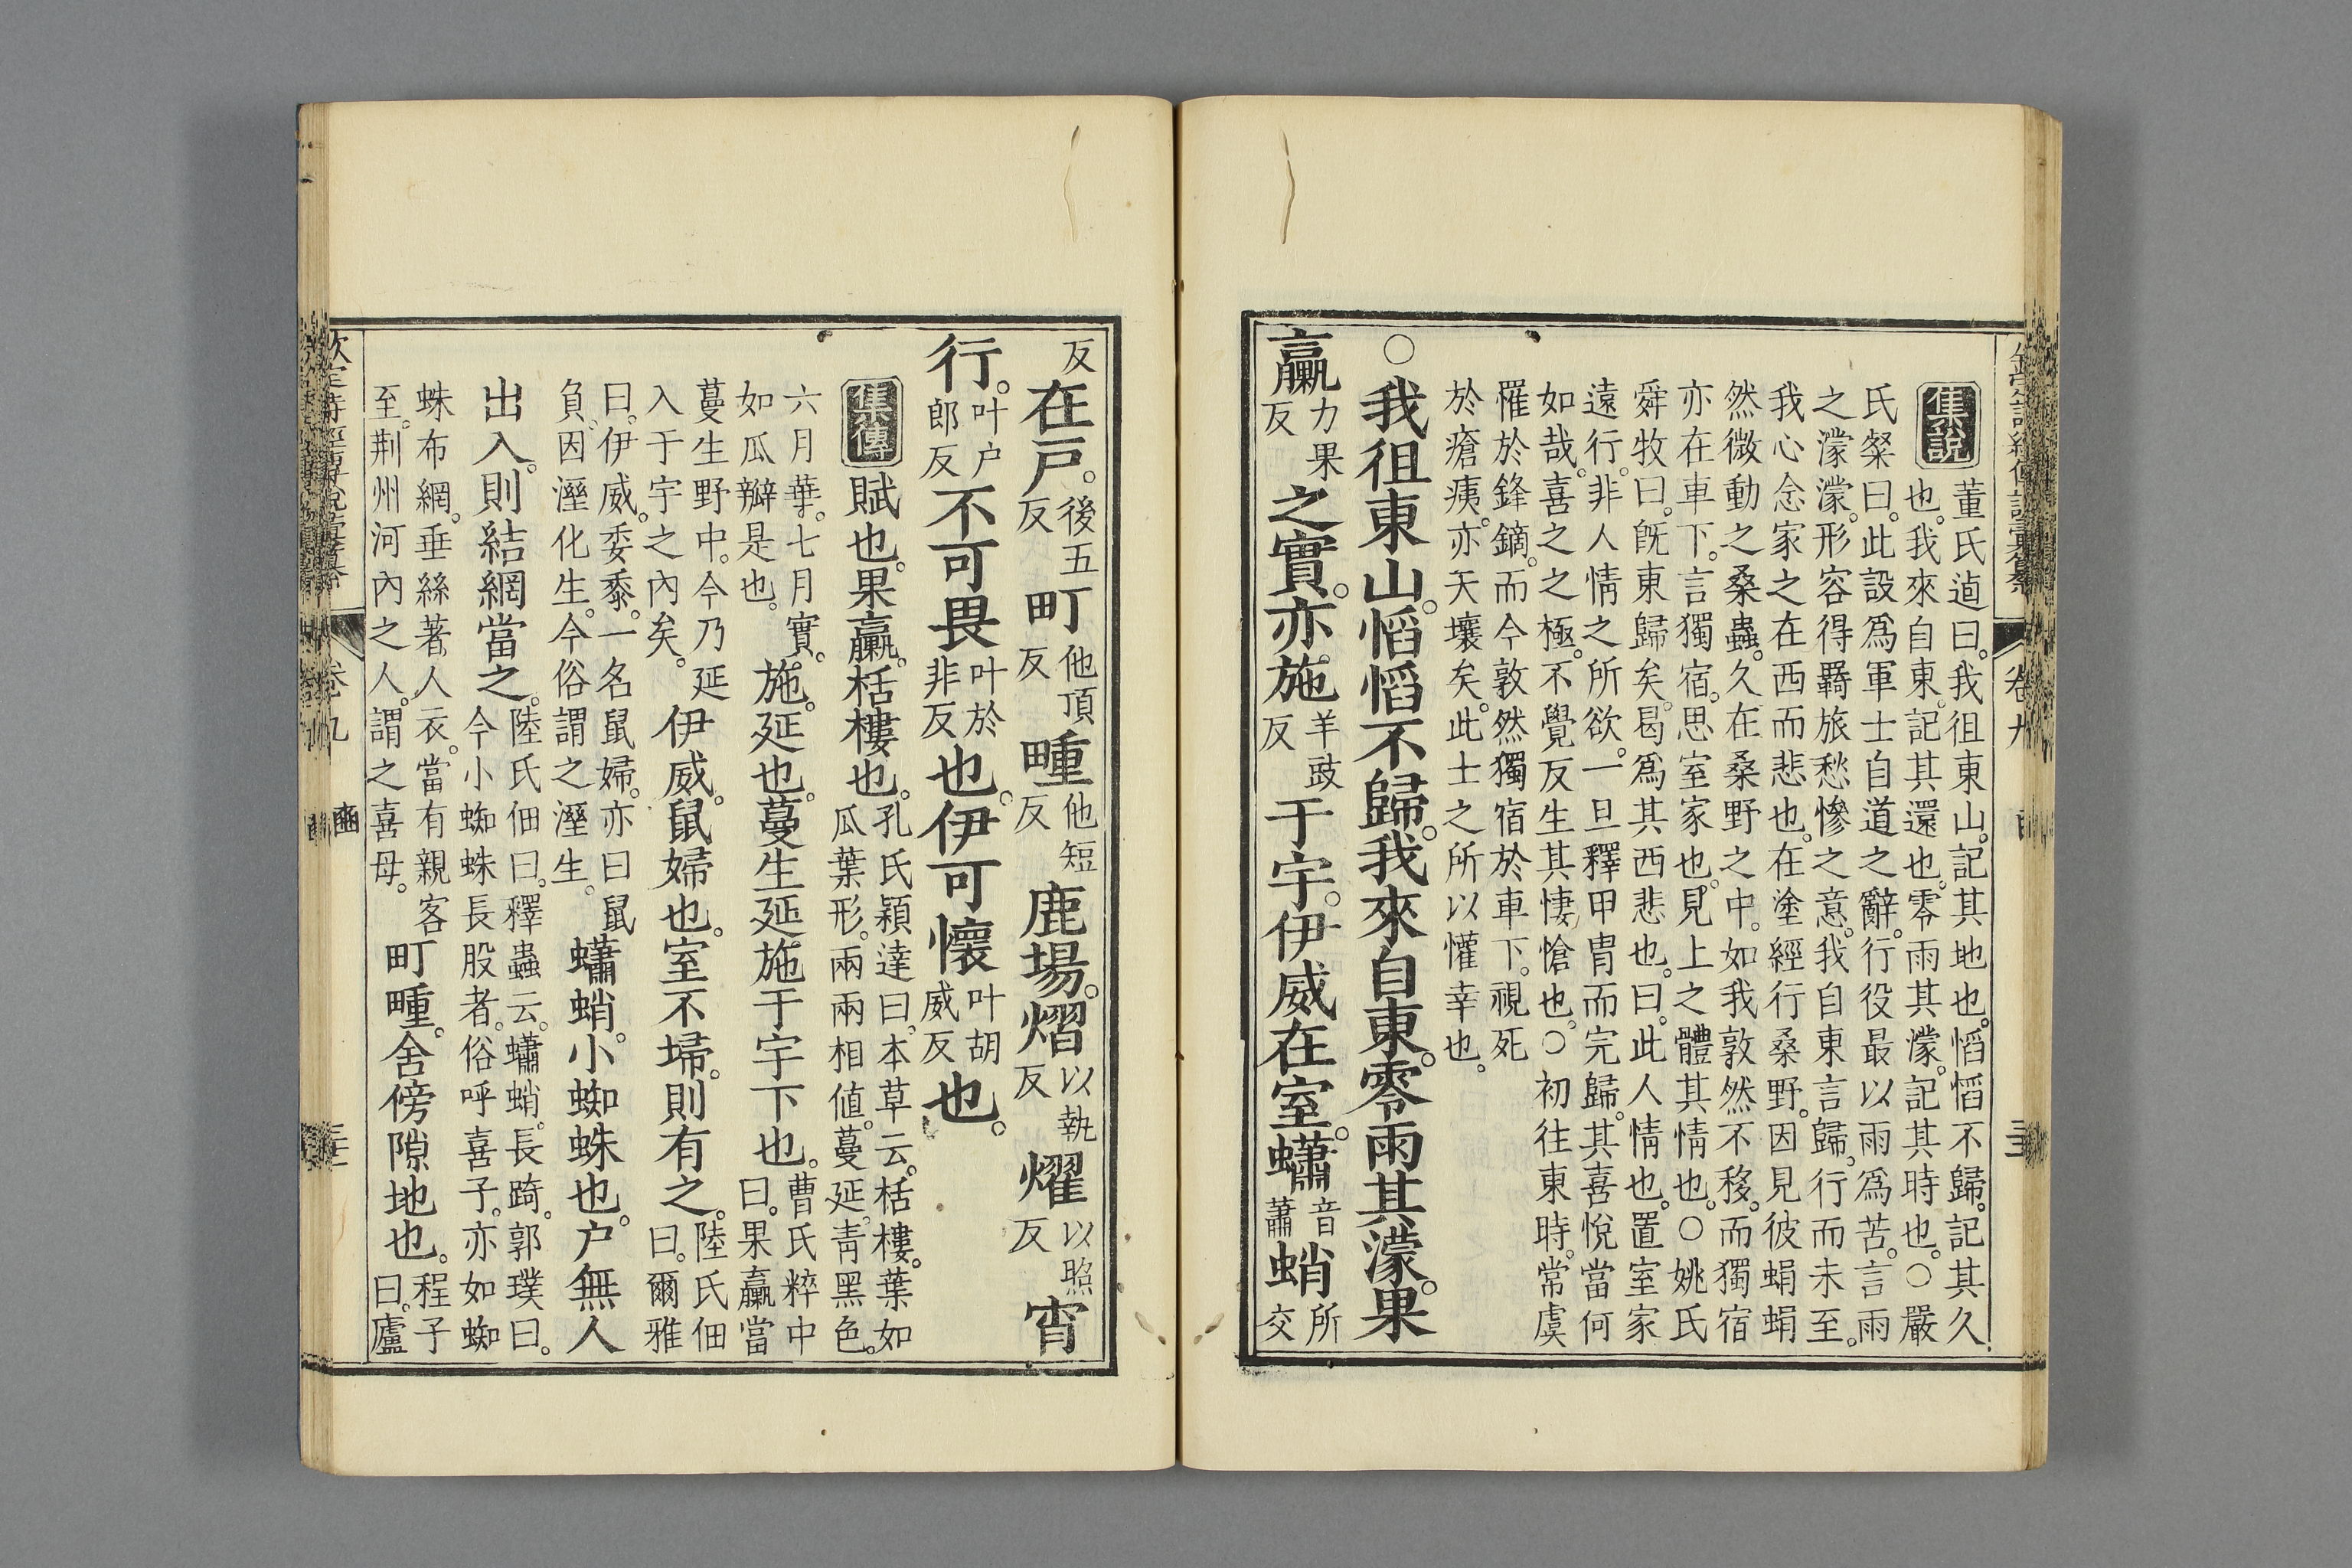 集說
董氏逌曰我徂東山記其地也慆慆不歸記其久
也我來自東記其還也零雨其濛記其時也○嚴
氏粲曰此設爲軍士自道之辭行役最以雨爲苦言雨
之濛濛形容得羇旅愁慘之意我自東言歸行而未至
我心念家之在西而悲也在塗經行桑野因見彼蜎蜎
然微動之桑蟲久在桑野之中如我敦然不移而獨宿
亦在車下言獨宿思室家也見上之體其情也○姚氏
舜牧曰旣東歸矣曷爲其西悲也曰此人情也置室家
遠行非人情之所欲一旦釋甲冑而完歸其喜悅當何
如哉喜之之極不覺反生其悽愴也○初往東時常虞
罹於鋒鏑而今敦然獨宿於車下視死
於瘡痍亦天壤矣此士之所以懽幸也
○我徂東山慆慆不歸我來自東零雨其濛果
臝力果反之實亦施羊豉反于宇伊威在室蠨音蕭蛸所交
反在戶後五反町他頂反畽他短反鹿場熠以執反燿以照反宵
行叶戶郎反不可畏叶於非反也伊可懷叶胡威反也
集傳賦也果臝栝樓也孔氏穎達曰本草云栝樓葉如
瓜葉形兩兩相値蔓延靑黑色
六月華七月實
如瓜瓣是也施延也蔓生延施于宇下也曹氏粹中
曰果臝當
蔓生野中今乃延
入于宇之內矣伊威鼠婦也室不埽則有之陸氏佃
曰爾雅
曰伊威委黍一名鼠婦亦曰鼠
負因溼化生今俗謂之溼生蠨蛸小蜘蛛也戶無人
出入則結網當之陸氏佃曰釋蟲云蠨蛸長踦郭璞曰
今小蜘蛛長股者俗呼喜子亦如蜘
蛛布網垂絲著人衣當有親客
至荆州河內之人謂之喜母町畽舍傍隙地也程子
曰廬
卷九
豳